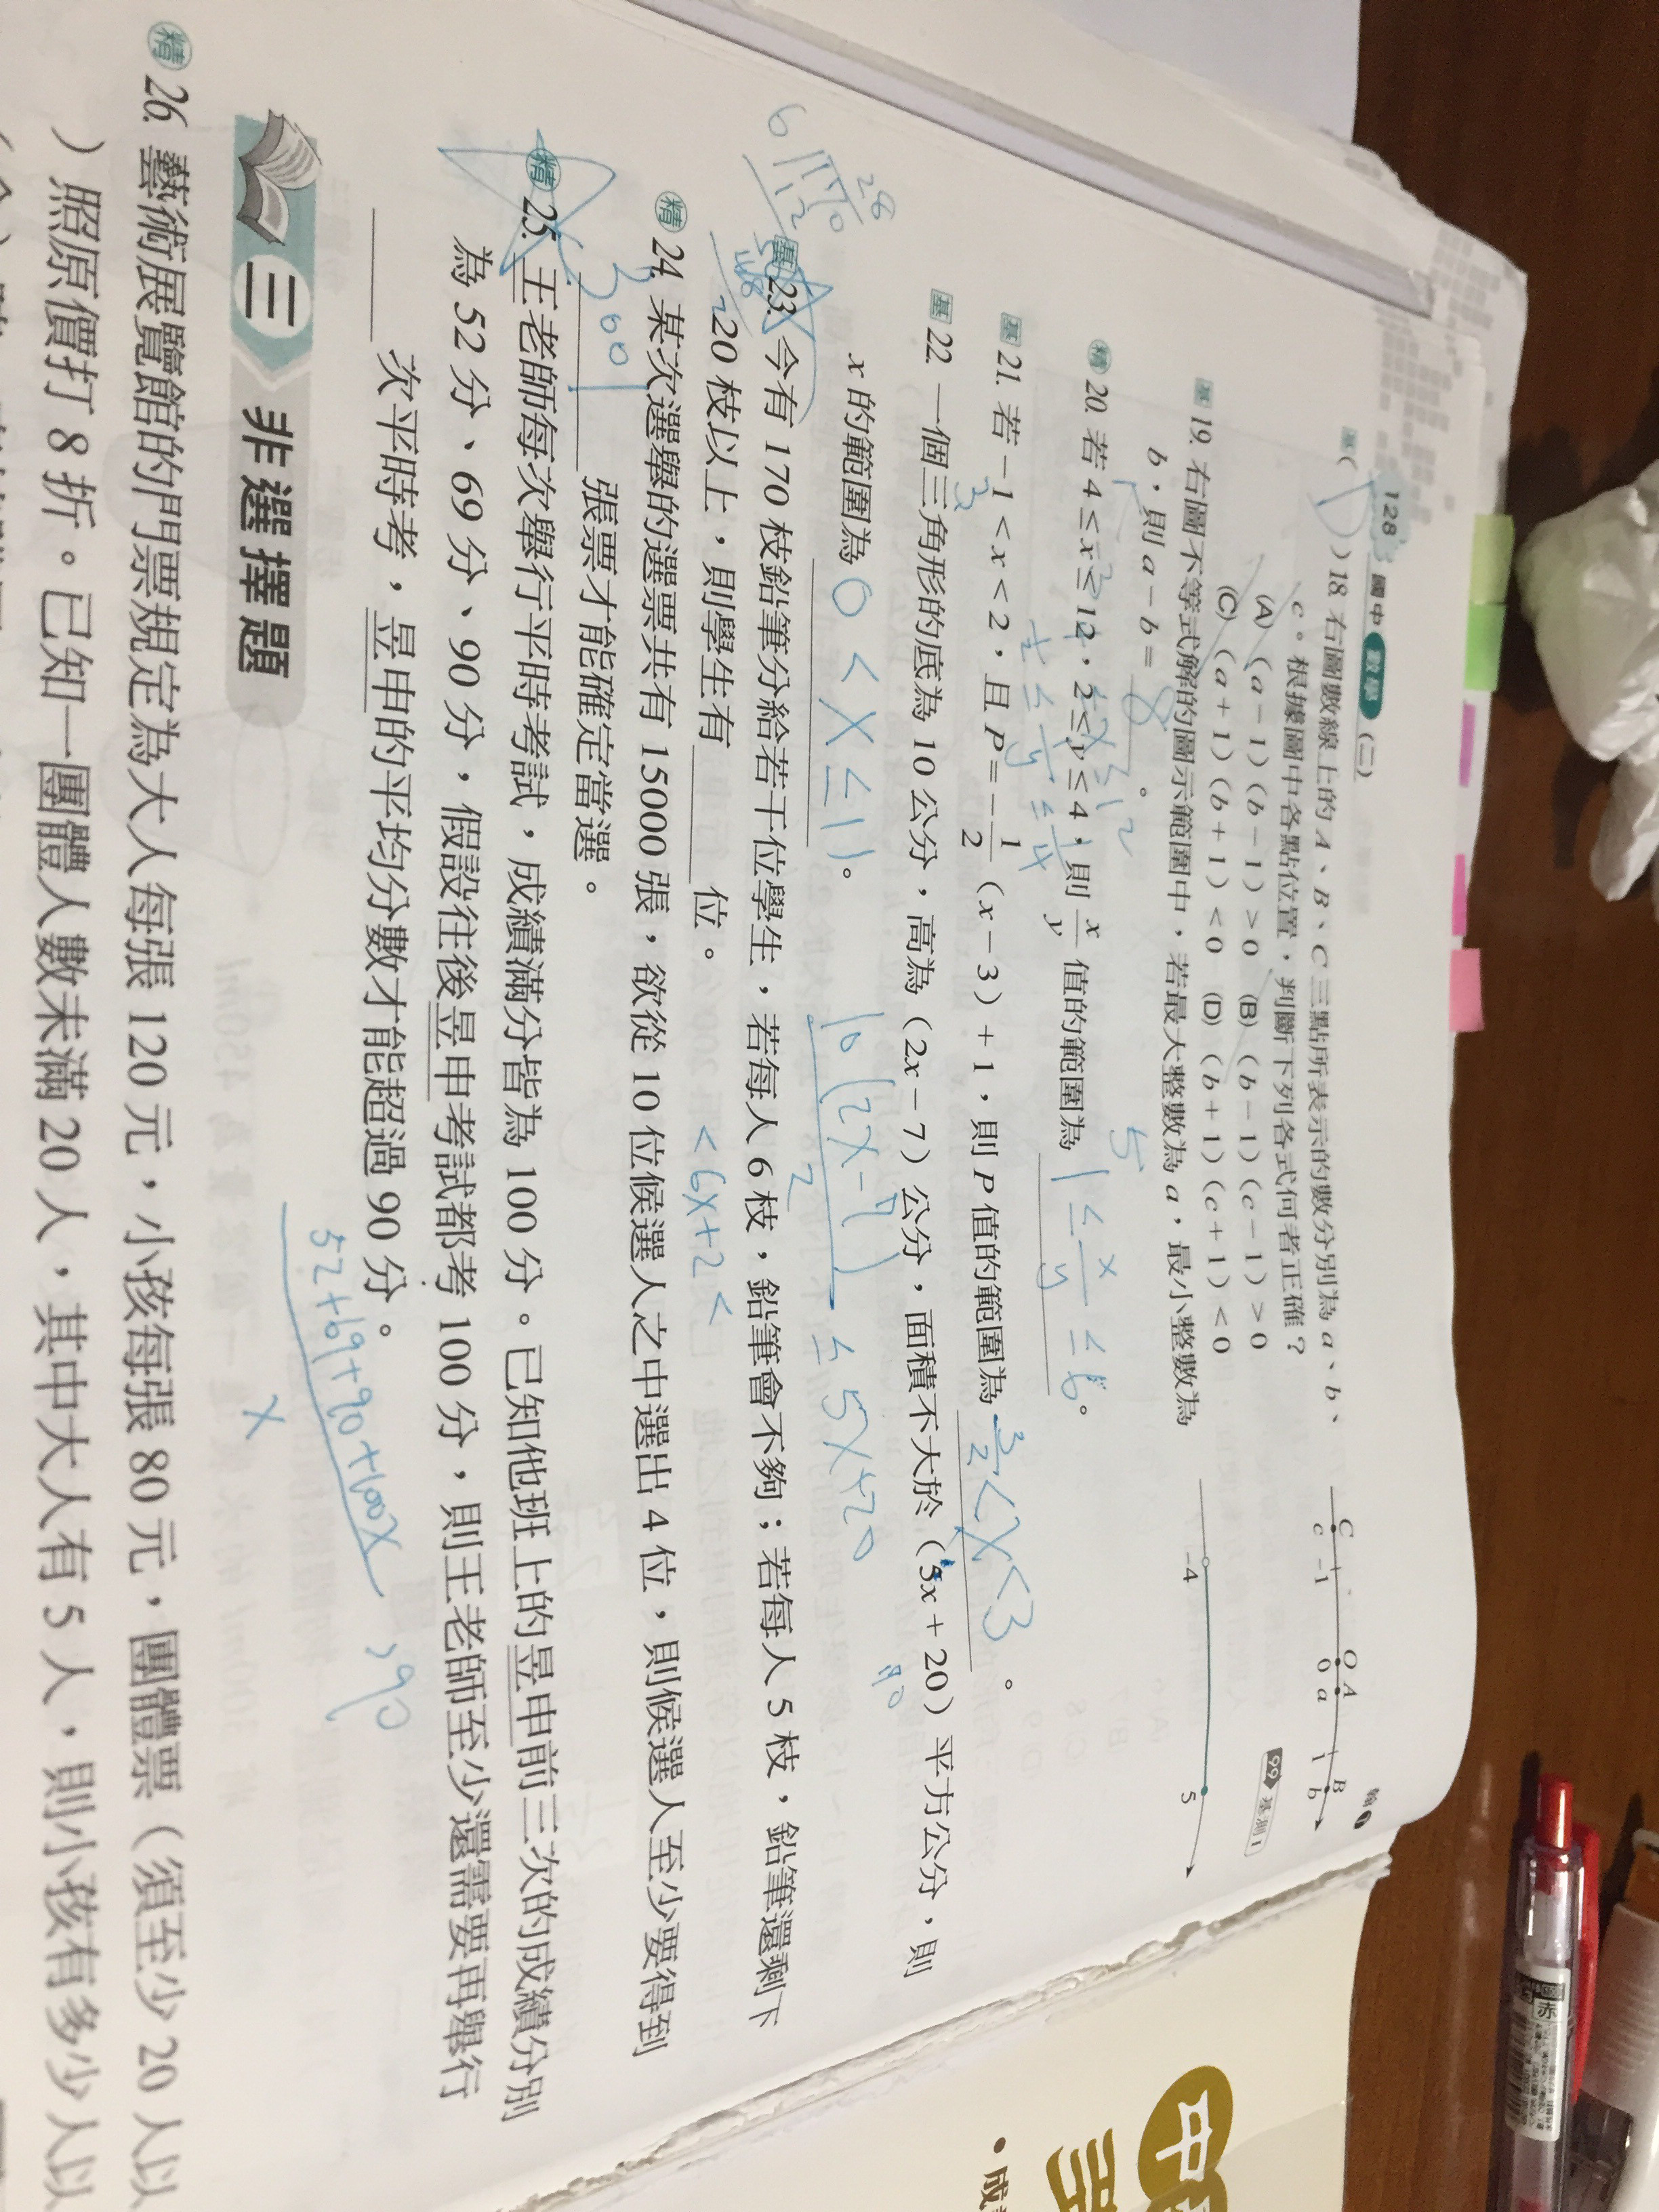 128 國中 數學 (二)
基 ( ) 18. 右圖數線上的 A、B、C 三點所表示的數分別為 a、b、
c。根據圖中各點位置，判斷下列各式何者正確？
(A) (a－1)(b－1)＞0 (B) (b－1)(c－1)＞0
(C) (a＋1)(b＋1)＜0 (D) (b＋1)(c＋1)＜0
C O A B
c －1 0 a 1 b
99 基測 I
基 19. 右圖不等式解的圖示範圍中，若最大整數為 a，最小整數為
b，則 a－b＝ 8 。
－4 5
精 20. 若 4≤x≤12，2≤y≤4，則 x/y 值的範圍為 1≤x/y≤6。
基 21. 若－1＜x＜2，且 P＝－1/2 (x－3)＋1，則 P 值的範圍為 3/2<x<3 。
基 22. 一個三角形的底為 10 公分，高為（2x－7）公分，面積不大於（5x＋20）平方公分，則
x 的範圍為 0<x≤11。
10(2x-7)/2 ≤ 5x+20
基 23. 今有 170 枝鉛筆分給若干位學生，若每人 6 枝，鉛筆會不夠；若每人 5 枝，鉛筆還剩下
20 枝以上，則學生有 位。
<6x+2<
精 24. 某次選舉的選票共有 15000 張，欲從 10 位候選人之中選出 4 位，則候選人至少要得到
3001 張票才能確定當選。
精 25. 王老師每次舉行平時考試，成績滿分皆為 100 分。已知他班上的昱申前三次的成績分別
為 52 分、69 分、90 分，假設往後昱申考試都考 100 分，則王老師至少還需要再舉行
次平時考，昱申的平均分數才能超過 90 分。
52+69+90+100x / x >90
三 非選擇題
精 26. 藝術展覽館的門票規定為大人每張 120 元，小孩每張 80 元，團體票（須至少 20 人以
）照原價打 8 折。已知一團體人數未滿 20 人，其中大人有 5 人，則小孩有多少人以